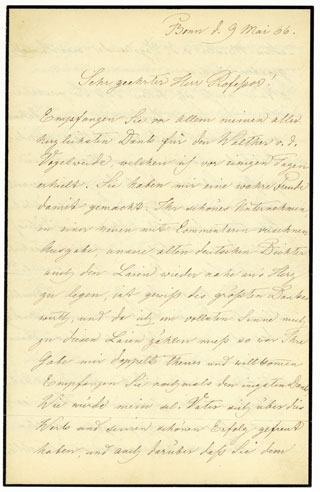 Bonn d. 9 Mai 66.
Sehr geehrter Herr Professor!
Empfangen Sie vor allem meinen aller
herzlichsten Dank für den Walther v. d.
Vogelweide, welchen ich vor einigen Tagen
erhielt. Sie haben mir eine wahre Freude
damit gemacht. Ihr schönes Unternehmen
in einer neuen mit Commentaren versehenen
Ausgabe unsere alten deutschen Dichter
auch den Laien wieder nahe ans Herz
zu legen, ist gewiß des größten Dankes
werth, und da ich im vollsten Sinne mich
zu diesen Laien zählen muß so war Ihre
Gabe mir doppelt theuer und willkommen
Empfangen Sie nochmals den innigsten Dank
Wie würde mein sel. Vater sich über das
Werk und seinen schönen Erfolg gefreut
haben, und auch darüber daß Sie dem